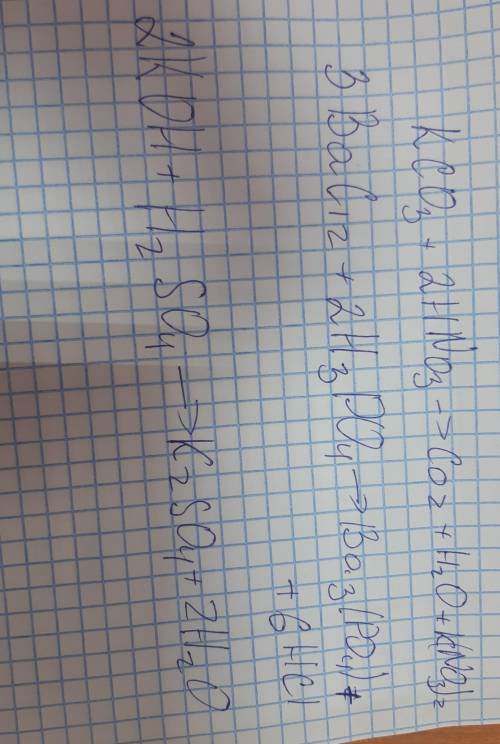 KCO3 + 2HNO3 -> CO2 + H2O + K(NO3)2
3 BaCl2 + 2H3PO4 -> Ba3(PO4)+
+ 6 HCl
2KOH + H2SO4 -> K2SO4 + 2H2O